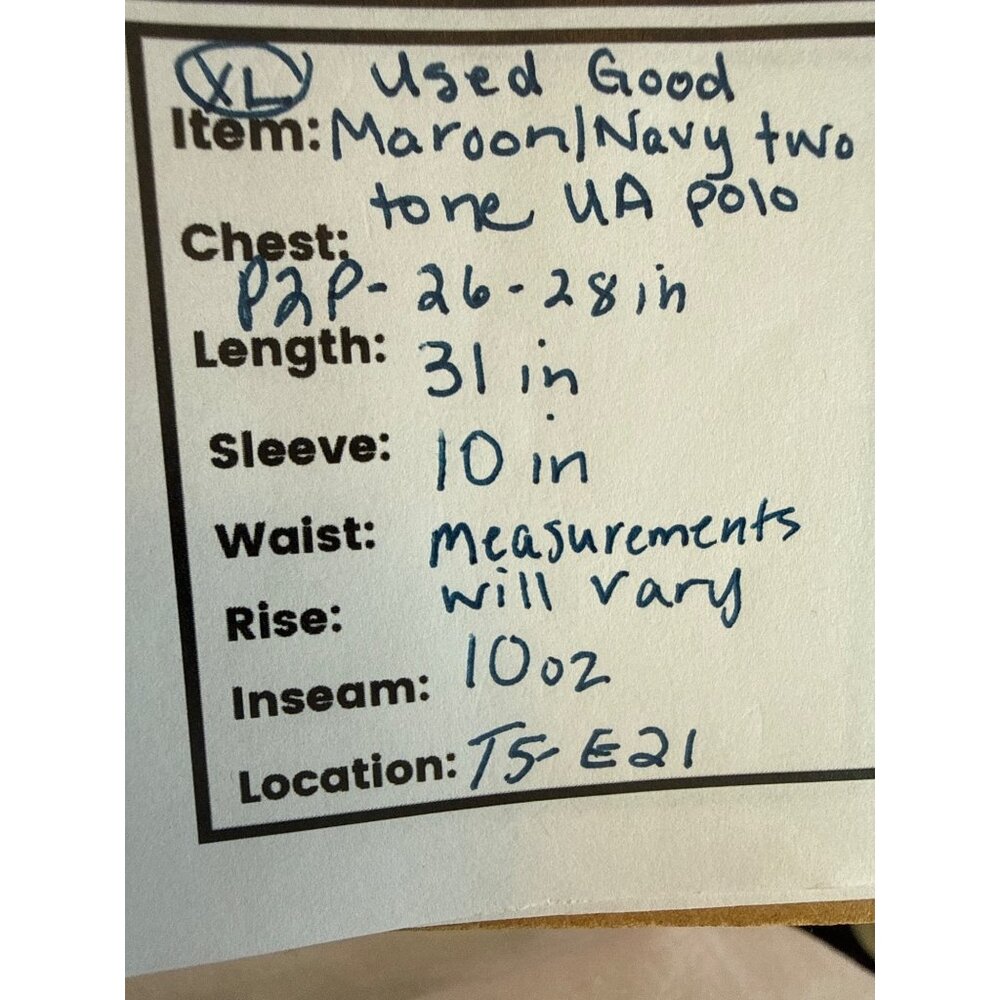 XL Used Good
Item: Maroon/Navy two
tone UA polo
Chest:
P2P- 26-28in
Length: 31 in
Sleeve: 10 in
Waist: Measurements
will vary
Rise:
Inseam: 10oz
Location: T5-E21